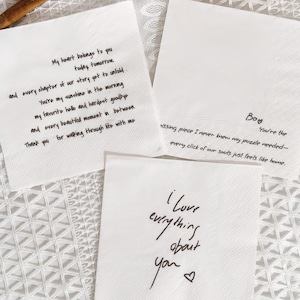 My heart belongs to you
today, tomorrow
and every chapter of our story yet to unfold.
You're my sunshine in the morning
my favorite hello and hardest goodbye
and every beautiful moment in between
Thank you for walking through life with me
Boy
You're the
missing piece I never knew my puzzle needed—
every click of our souls just feels like home.
i love
everything
about
you ♡